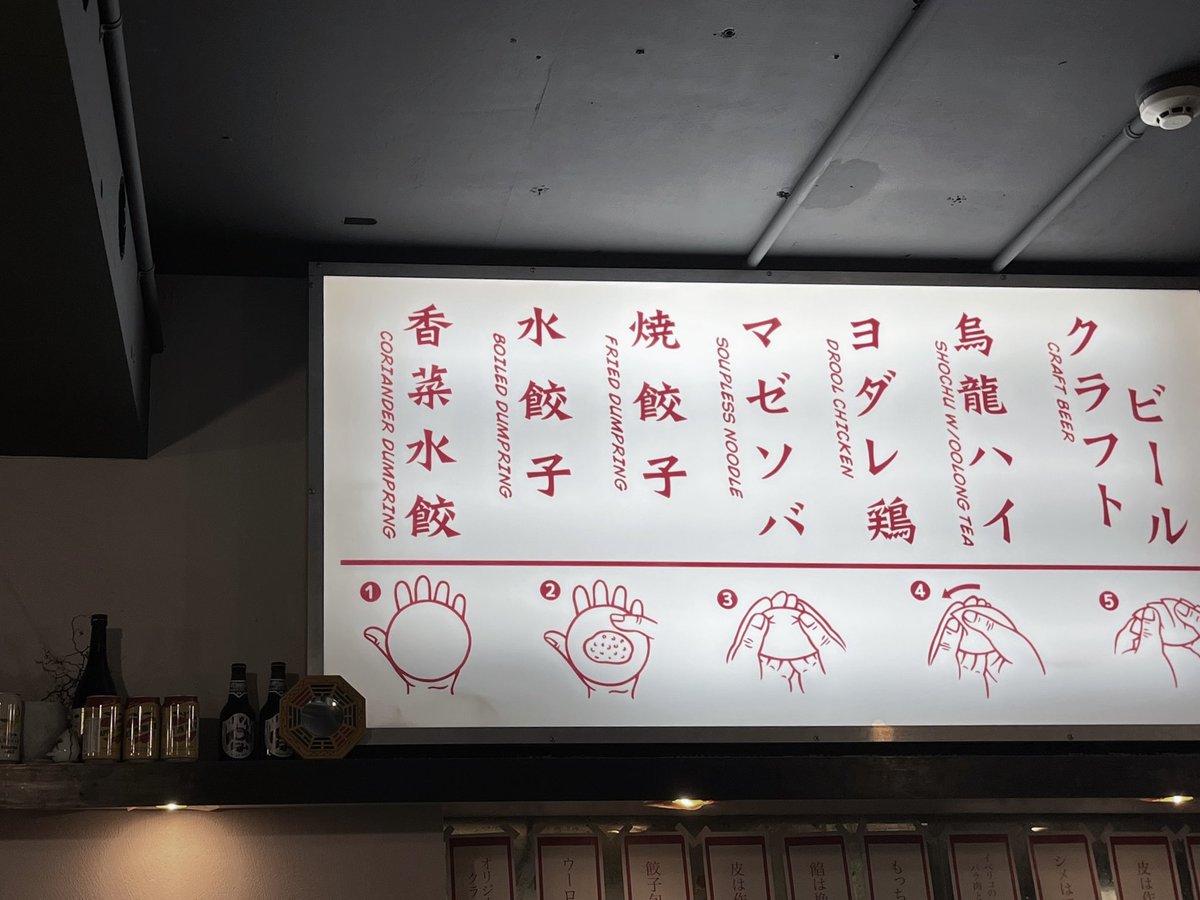 香菜水餃
CORIANDER DUMPRING
水餃子
BOILED DUMPRING
焼餃子
FRIED DUMPRING
マゼソバ
SOUPLESS NOODLE
ヨダレ鶏
DROOL CHICKEN
烏龍ハイ
SHOCHU W/OOLONG TEA
クラフト
ビール
CRAFT BEER
1
2
3
4
5
オリジ
クラ
ウーロ
餃子
皮は作
餡は
もっち
イベリコの
シメは
皮は作